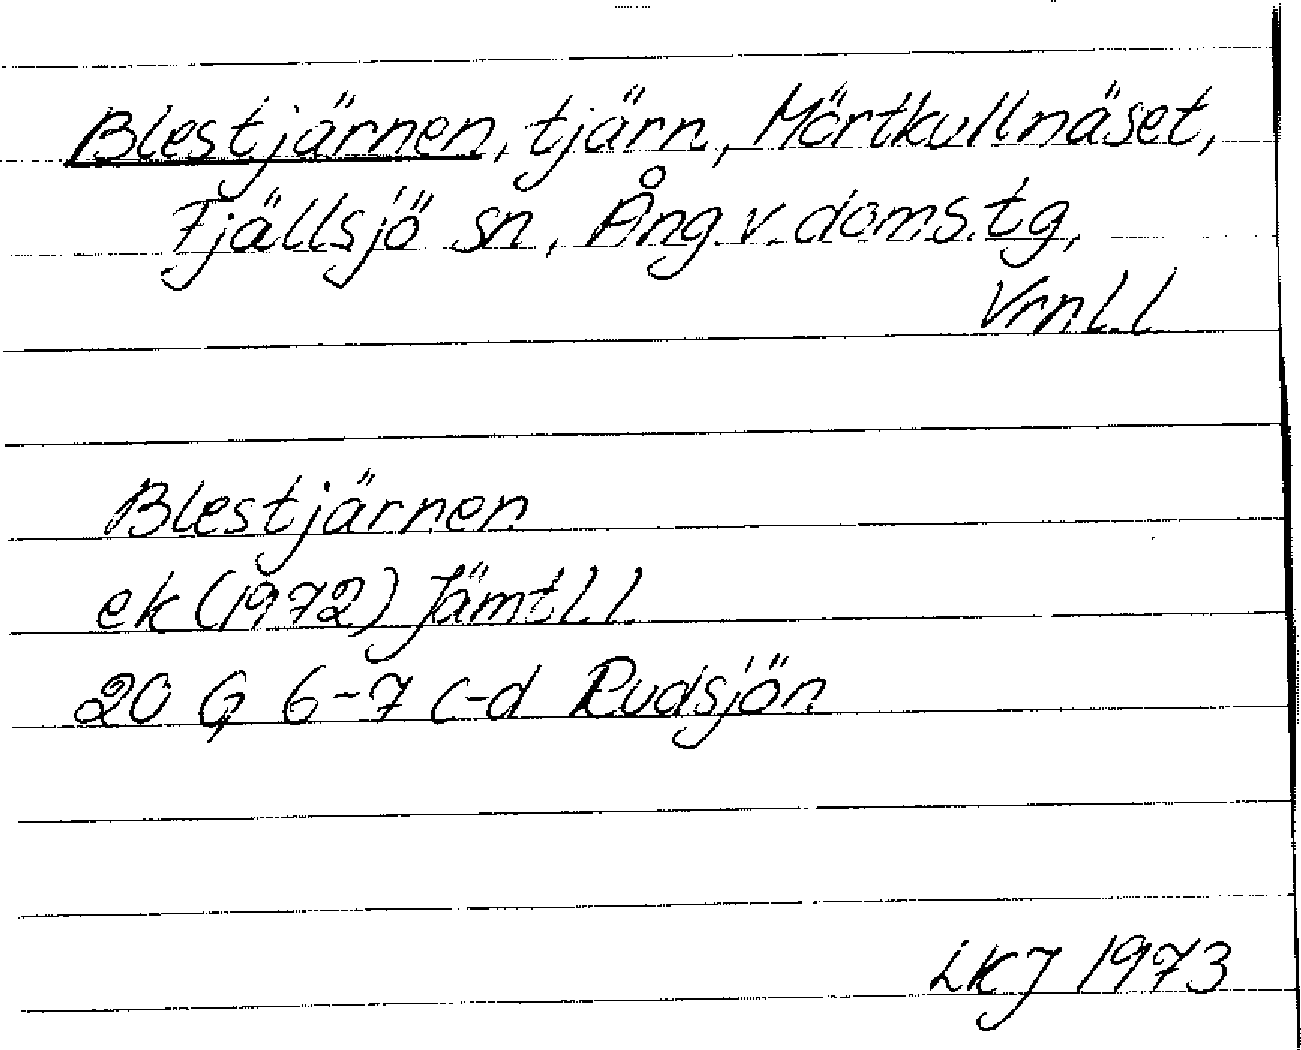 Blestjärnen, tjärn, Mörtkullnäset,
Fjällsjö sn, Ång.v.doms.tg,
Vrnl.l
Blestjärnen
ek (1972) Jämtl.l.
20 G 6-7 c-d Rudsjön
LKJ 1973